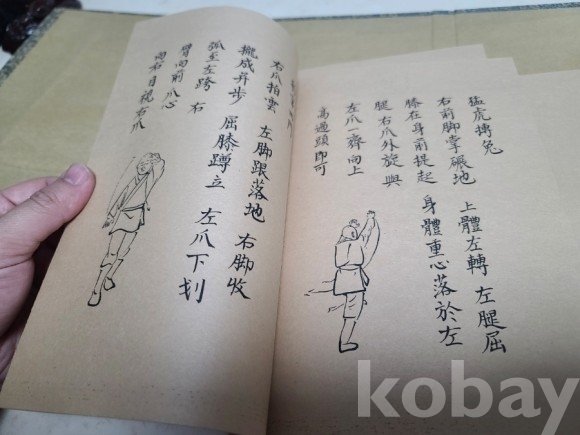 猛虎搏兔
右前脚掌碾地 上體左轉 左腿屈
膝在身前提起 身體重心落於左
腿右爪外旋 與
左爪一齊向上
高過頭即可
右爪拍雲
左脚跟落地 右脚收
攏成并步 屈膝蹲立 左爪下划
弧至左跨 右
臂向前 爪心
向右 目視右爪
kobay